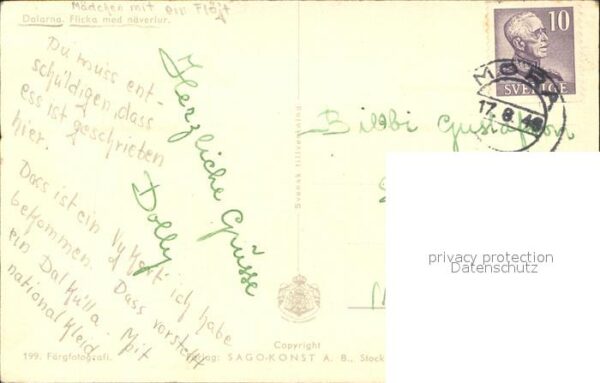 Mädchen mit ein Flöjt
Dalarna. Flicka med näverlur.
Du muss ent-
schüldigen, dass
ess ist geschrieben
hier.
Dass ist ein Vykort ich habe
bekommen. Dass vorstellt
ein Dalkulla. Mit
nationalkleid
Herzliche Grüsse
Dolly
Bibbi Gustafson
10
SVERIGE
MORA
17.8.48
privacy protection
Datenschutz
Copyright
199. Färgfotografi.
SAGO-KONST A. B., Stock